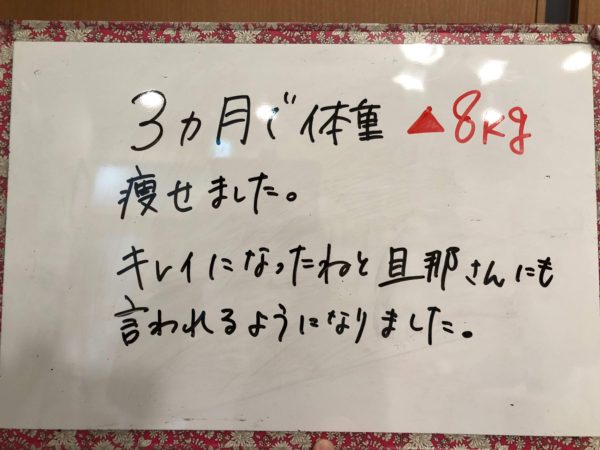 3ヵ月で体重 ▲8Kg
痩せました。
キレイになったねと旦那さんにも
言われるようになりました。